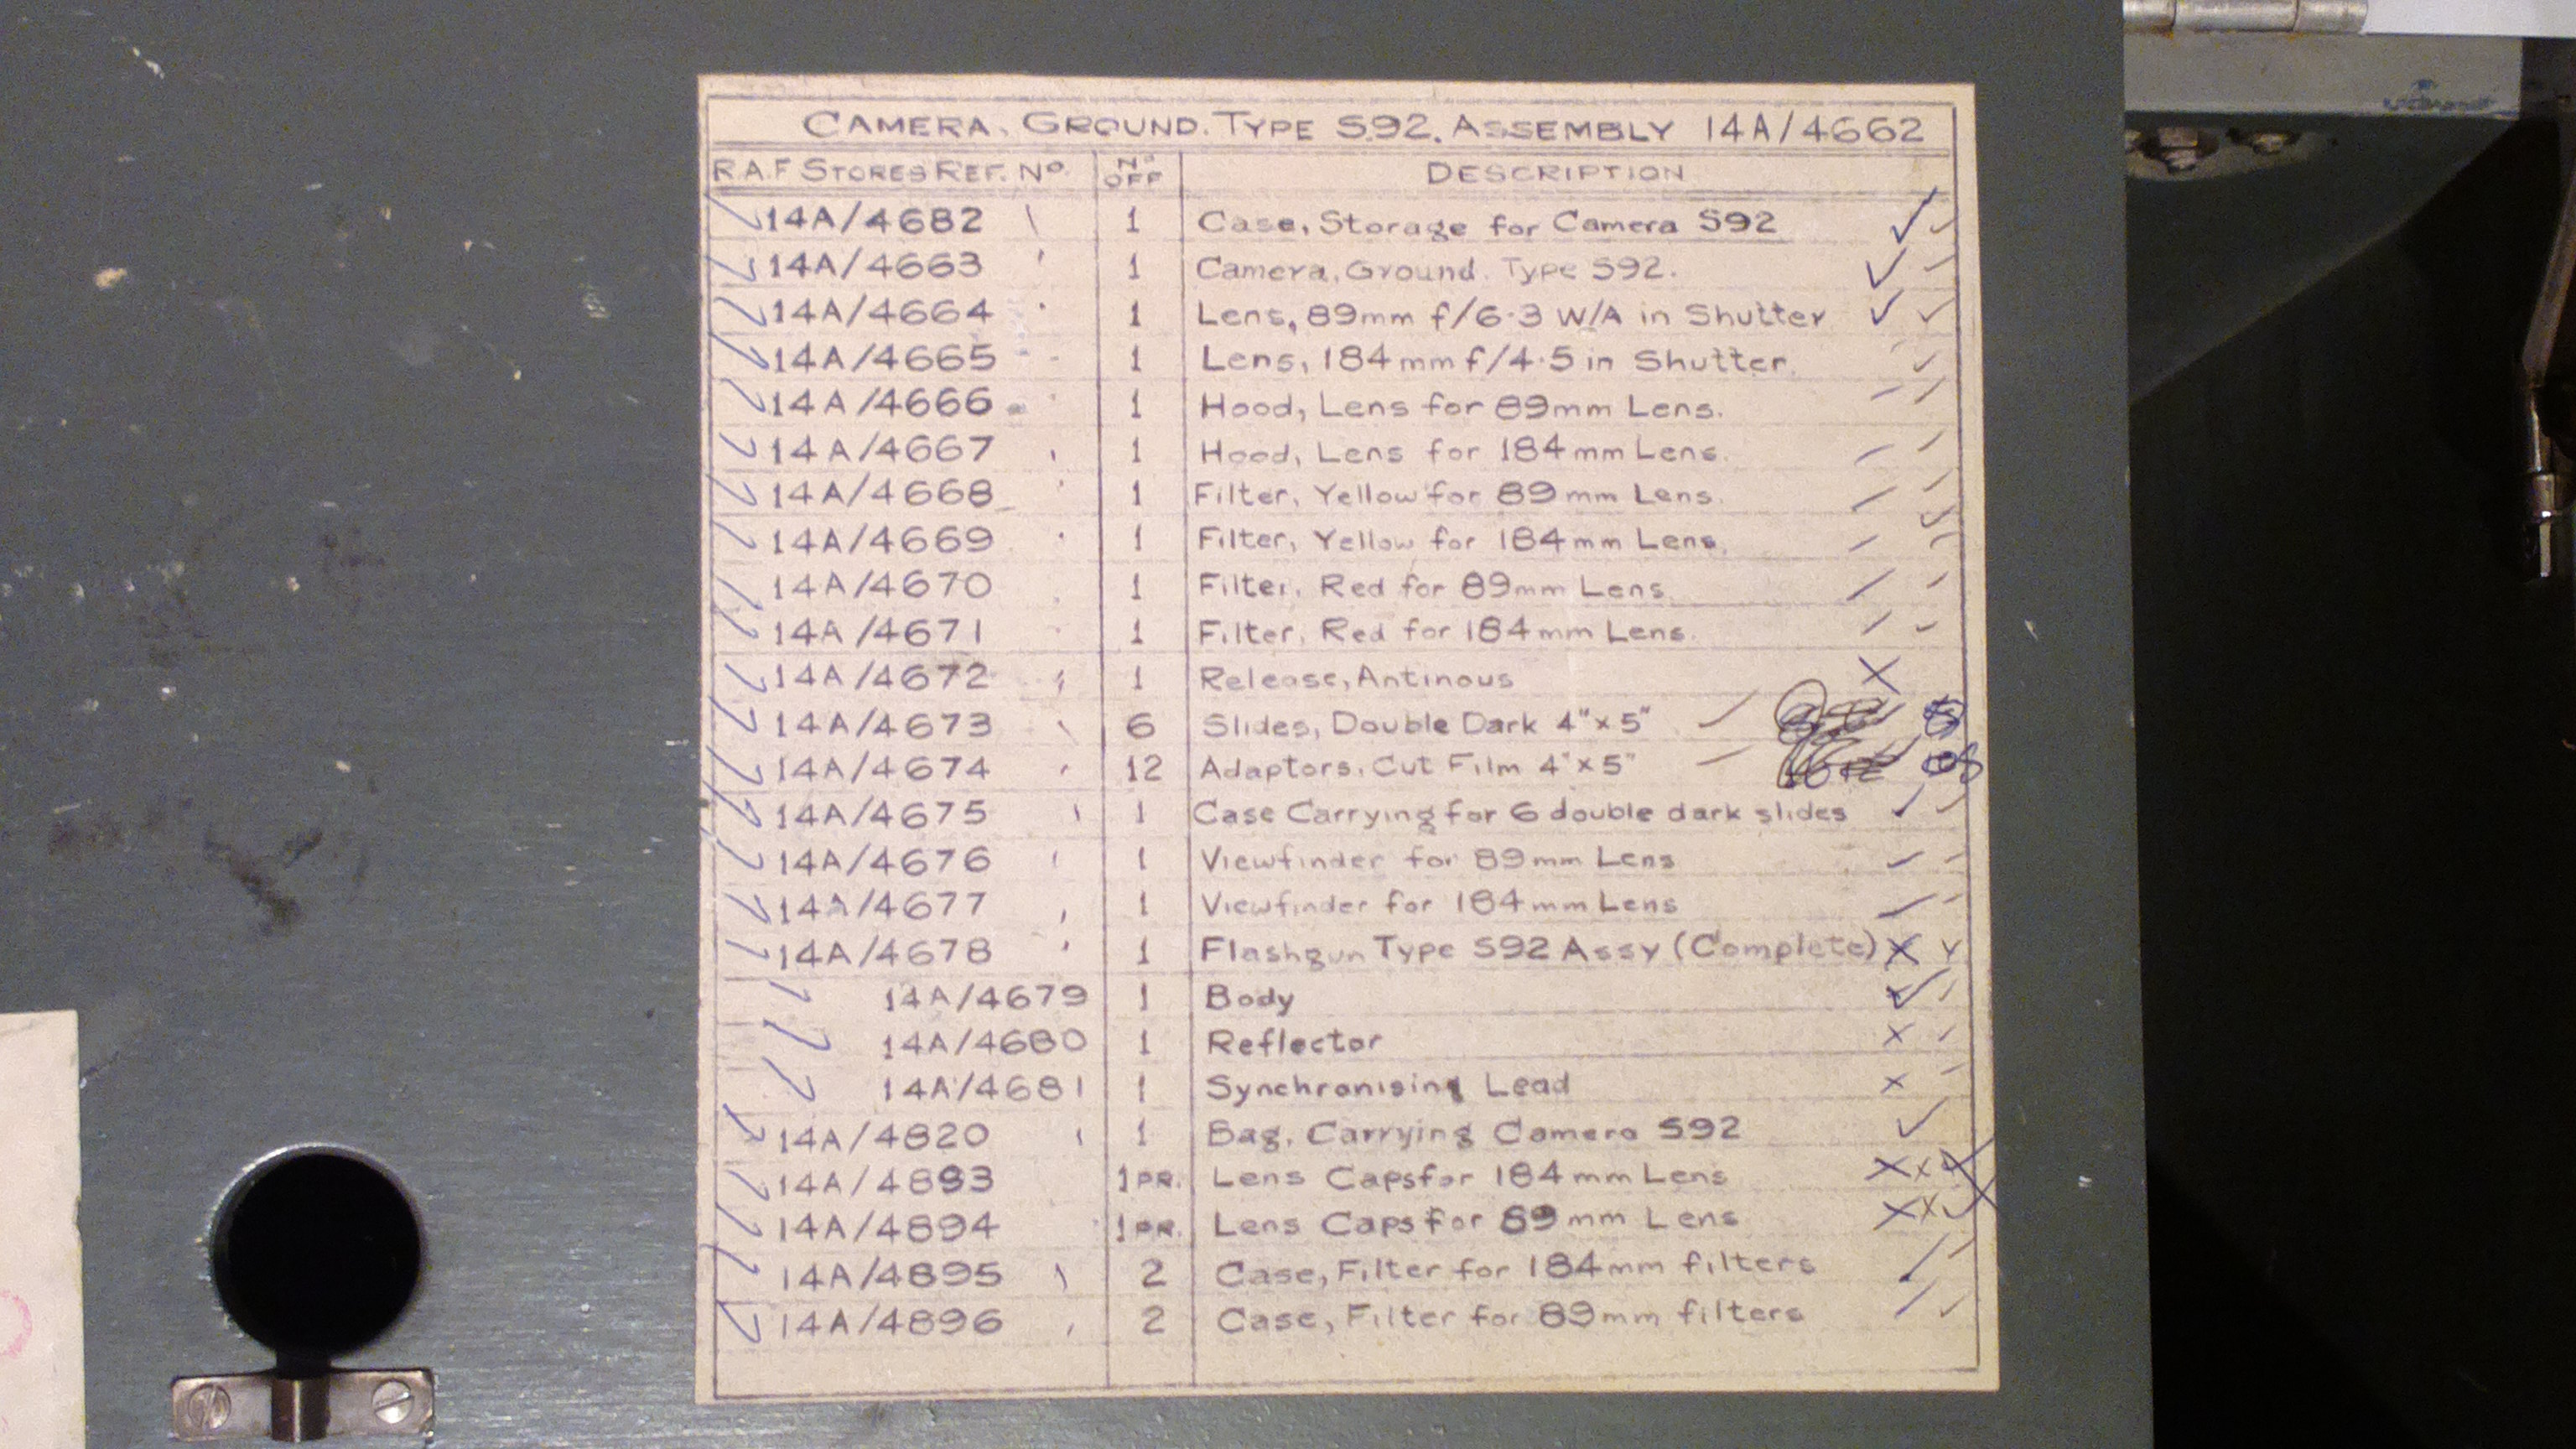 CAMERA. GROUND. TYPE S.92. ASSEMBLY 14A/4662
R.A.F STORES REF. No. No OFF DESCRIPTION
14A/4682 1 Case, Storage for Camera S92
14A/4663 1 Camera, Ground. Type S92.
14A/4664 1 Lens, 89mm f/6·3 W/A in Shutter
14A/4665 1 Lens, 184mm f/4·5 in Shutter.
14A/4666 1 Hood, Lens for 89mm Lens.
14A/4667 1 Hood, Lens for 184mm Lens.
14A/4668 1 Filter, Yellow for 89mm Lens.
14A/4669 1 Filter, Yellow for 184mm Lens.
14A/4670 1 Filter, Red for 89mm Lens.
14A/4671 1 Filter, Red for 184mm Lens.
14A/4672 1 Release, Antinous
14A/4673 6 Slides, Double Dark 4"x5"
14A/4674 12 Adaptors, Cut Film 4"x5"
14A/4675 1 Case Carrying for 6 double dark slides
14A/4676 1 Viewfinder for 89mm Lens
14A/4677 1 Viewfinder for 184mm Lens
14A/4678 1 Flashgun Type S92 Assy (Complete)
14A/4679 1 Body
14A/4680 1 Reflector
14A/4681 1 Synchronising Lead
14A/4820 1 Bag, Carrying Camera S92
14A/4893 1 PR. Lens Caps for 184mm Lens
14A/4894 1 PR. Lens Caps for 89mm Lens
14A/4895 2 Case, Filter for 184mm filters
14A/4896 2 Case, Filter for 89mm filters